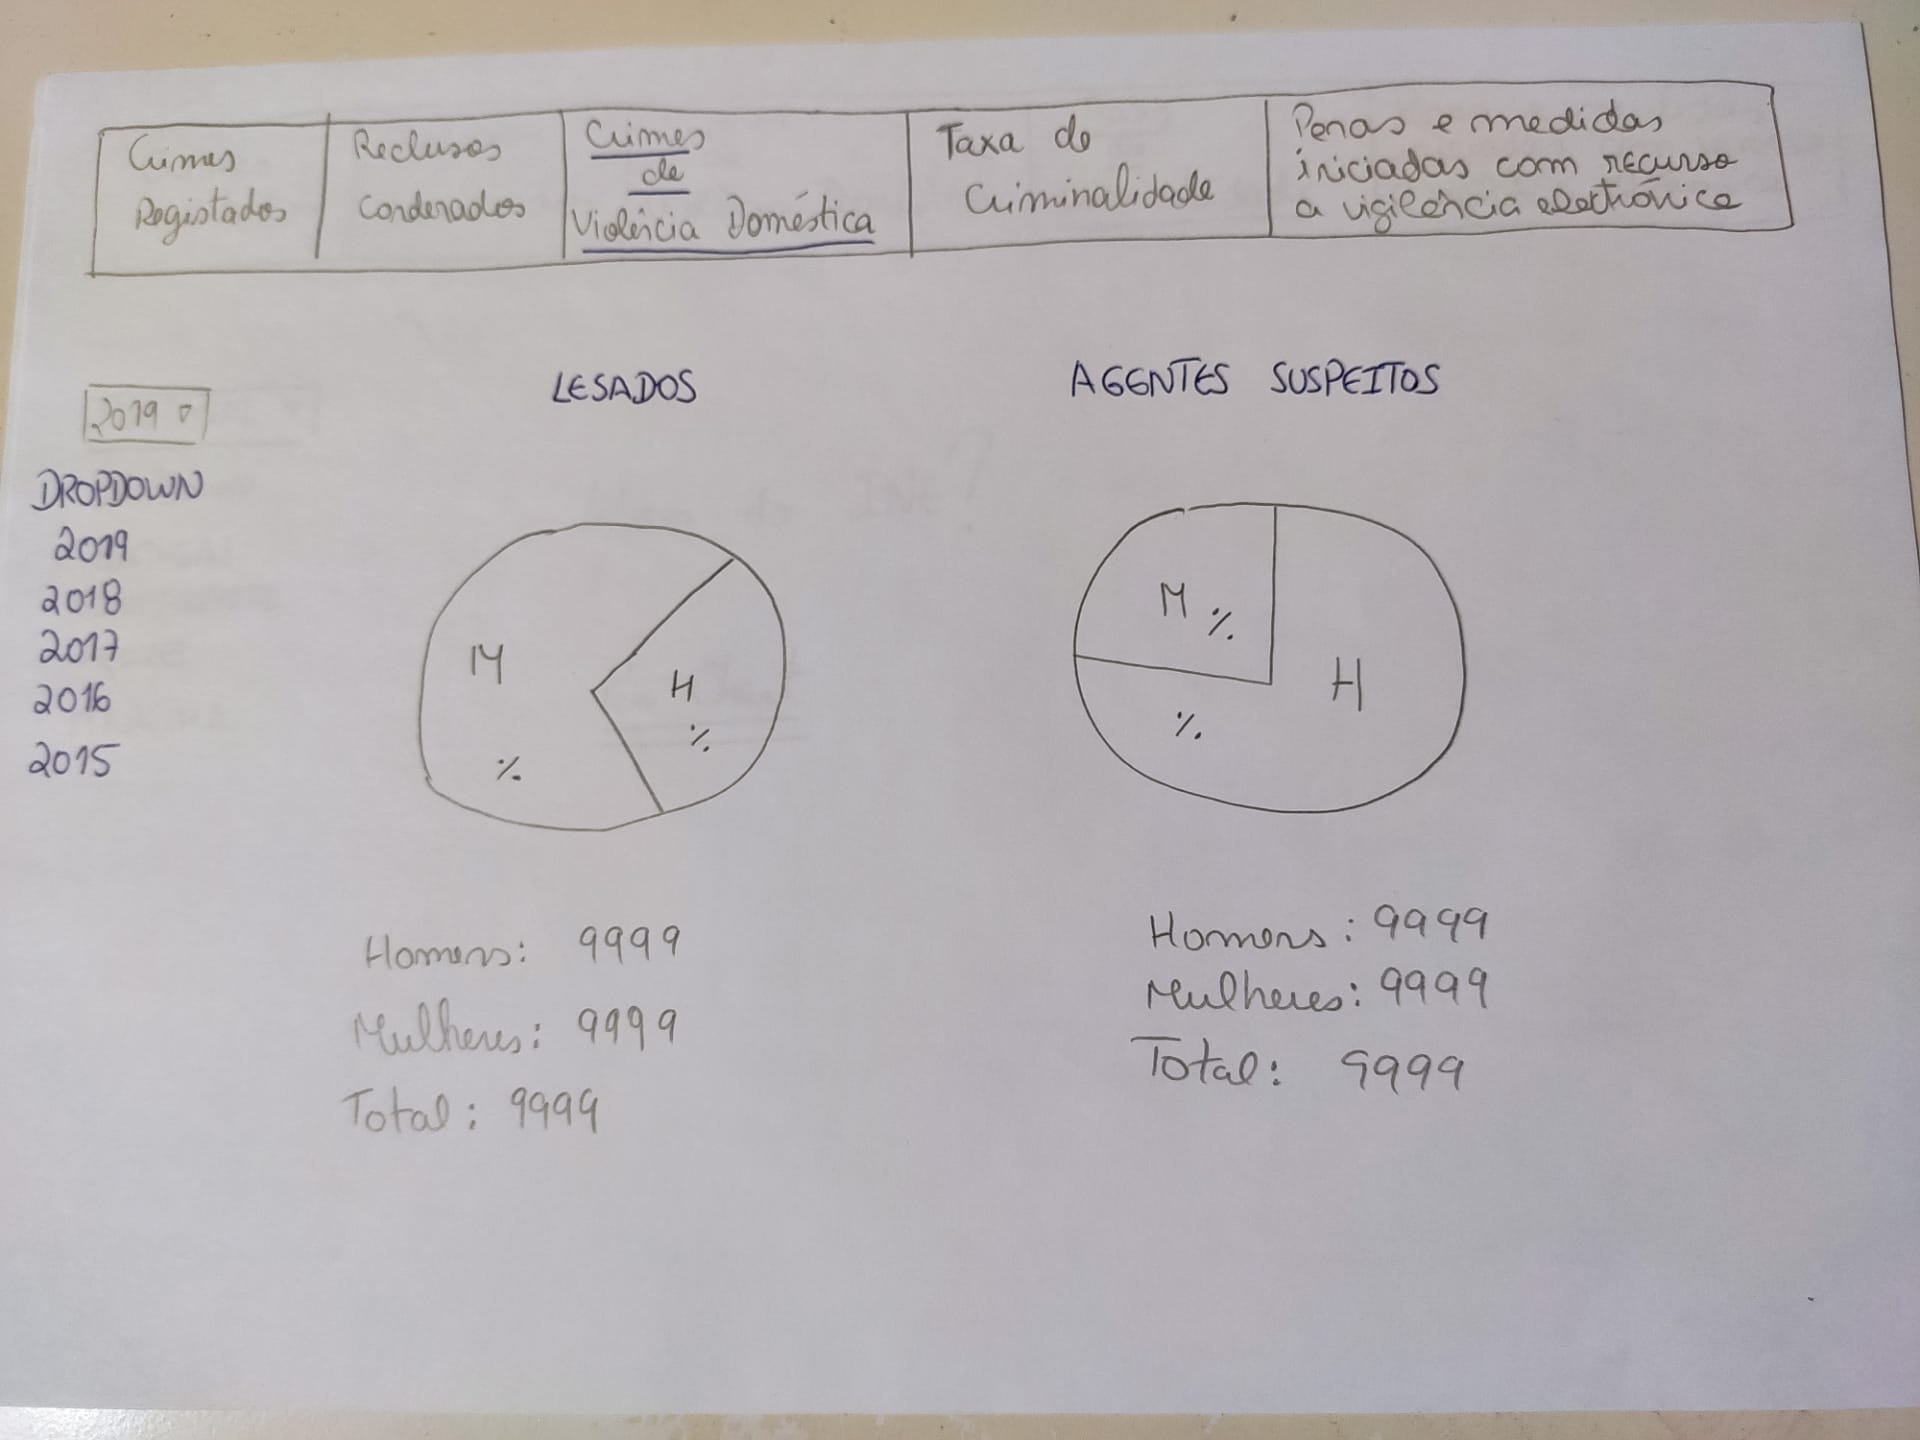 Crimes
Registados
Reclusos
Condenados
Crimes
de
Violência Doméstica
Taxa de
Criminalidade
Penas e medidas
iniciadas com recurso
a vigilância electrónica
LESADOS
AGENTES SUSPEITOS
2019 ▿
DROPDOWN
2019
2018
2017
2016
2015
M
%
H
%
M %
H
%
Homens: 9999
Mulheres: 9999
Total: 9999
Homens: 9999
Mulheres: 9999
Total: 9999